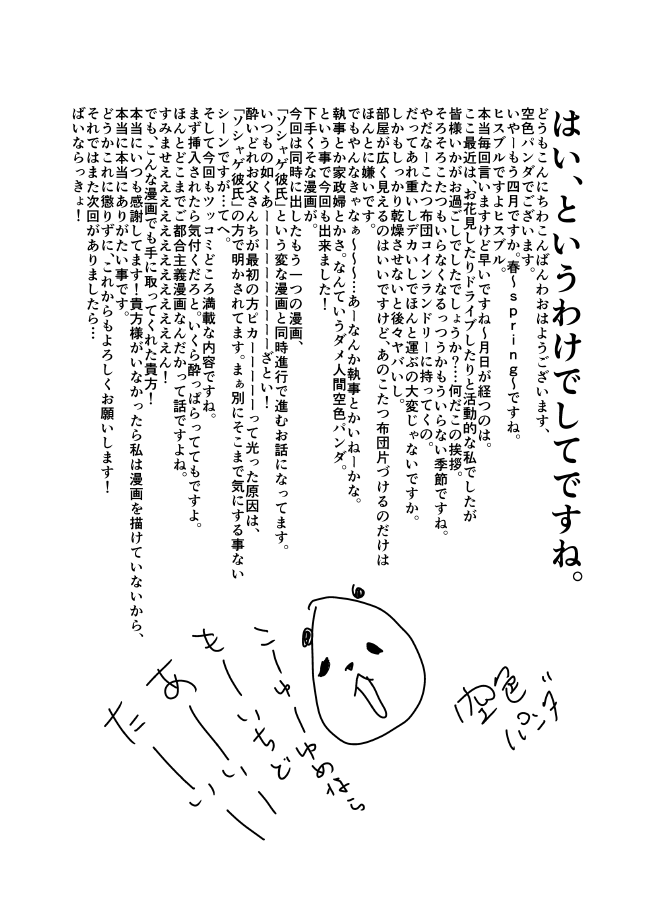 はい、というわけでしてですね。
どうもこんにちわこんばんわおはようございます、
空色パンダでございます。
いやーもう四月ですか。春～spring～ですね。
ヒスブルですよヒスブル。
本当毎回言いますけど早いですね～月日が経つのは。
ここ最近は、お花見したりドライブしたりと活動的な私でしたが
皆様いかがお過ごしでしたでしょうか？…何だこの挨拶。
そろそろこたつもいらなくなるっつうかもういらない季節ですね。
やだなーこたつ布団コインランドリーに持ってくの。
だってあれ重いしデカいしでほんと運ぶの大変じゃないですか。
しかもしっかり乾燥させないと後々ヤバいし。
部屋が広く見えるのはいいですけど、あのこたつ布団片づけるのだけは
ほんとに嫌いです。
でもやんなきゃなぁ～～～…あーなんか執事とかいねーかな。
執事とか家政婦とかさ。なんていうダメ人間空色パンダ。
という事で今回も出来ました！
下手くそな漫画が。
今回は同時に出したもう一つの漫画、
「ソシャゲ彼氏」という変な漫画と同時進行で進むお話になってます。
いつもの如くあーーーーーーーーーざとい！
酔いどれお父さんちが最初の方ピカーーーーーって光った原因は、
「ソシャゲ彼氏」の方で明かされてます。まぁ別にそこまで気にする事ない
シーンですが…てへ。
そして今回もツッコミどころ満載な内容ですね。
まず挿入されたら気付くだろと。いくら酔っぱらっててもですよ。
ほんとどこまでご都合主義漫画なんだかって話ですよね。
すみませえええええええええええええん！
でも、こんな漫画でも手に取ってくれた貴方！
本当にいつも感謝してます！貴方様がいなかったら私は漫画を描けていないから、
本当に本当にありがたい事です。
どうかこれに懲りずに、これからもよろしくお願いします！
それではまた次回がありましたら…
ばいならっきょ！
空色
パンダ
こーゆーゆめなら
もーいちど
あーいい
たーい